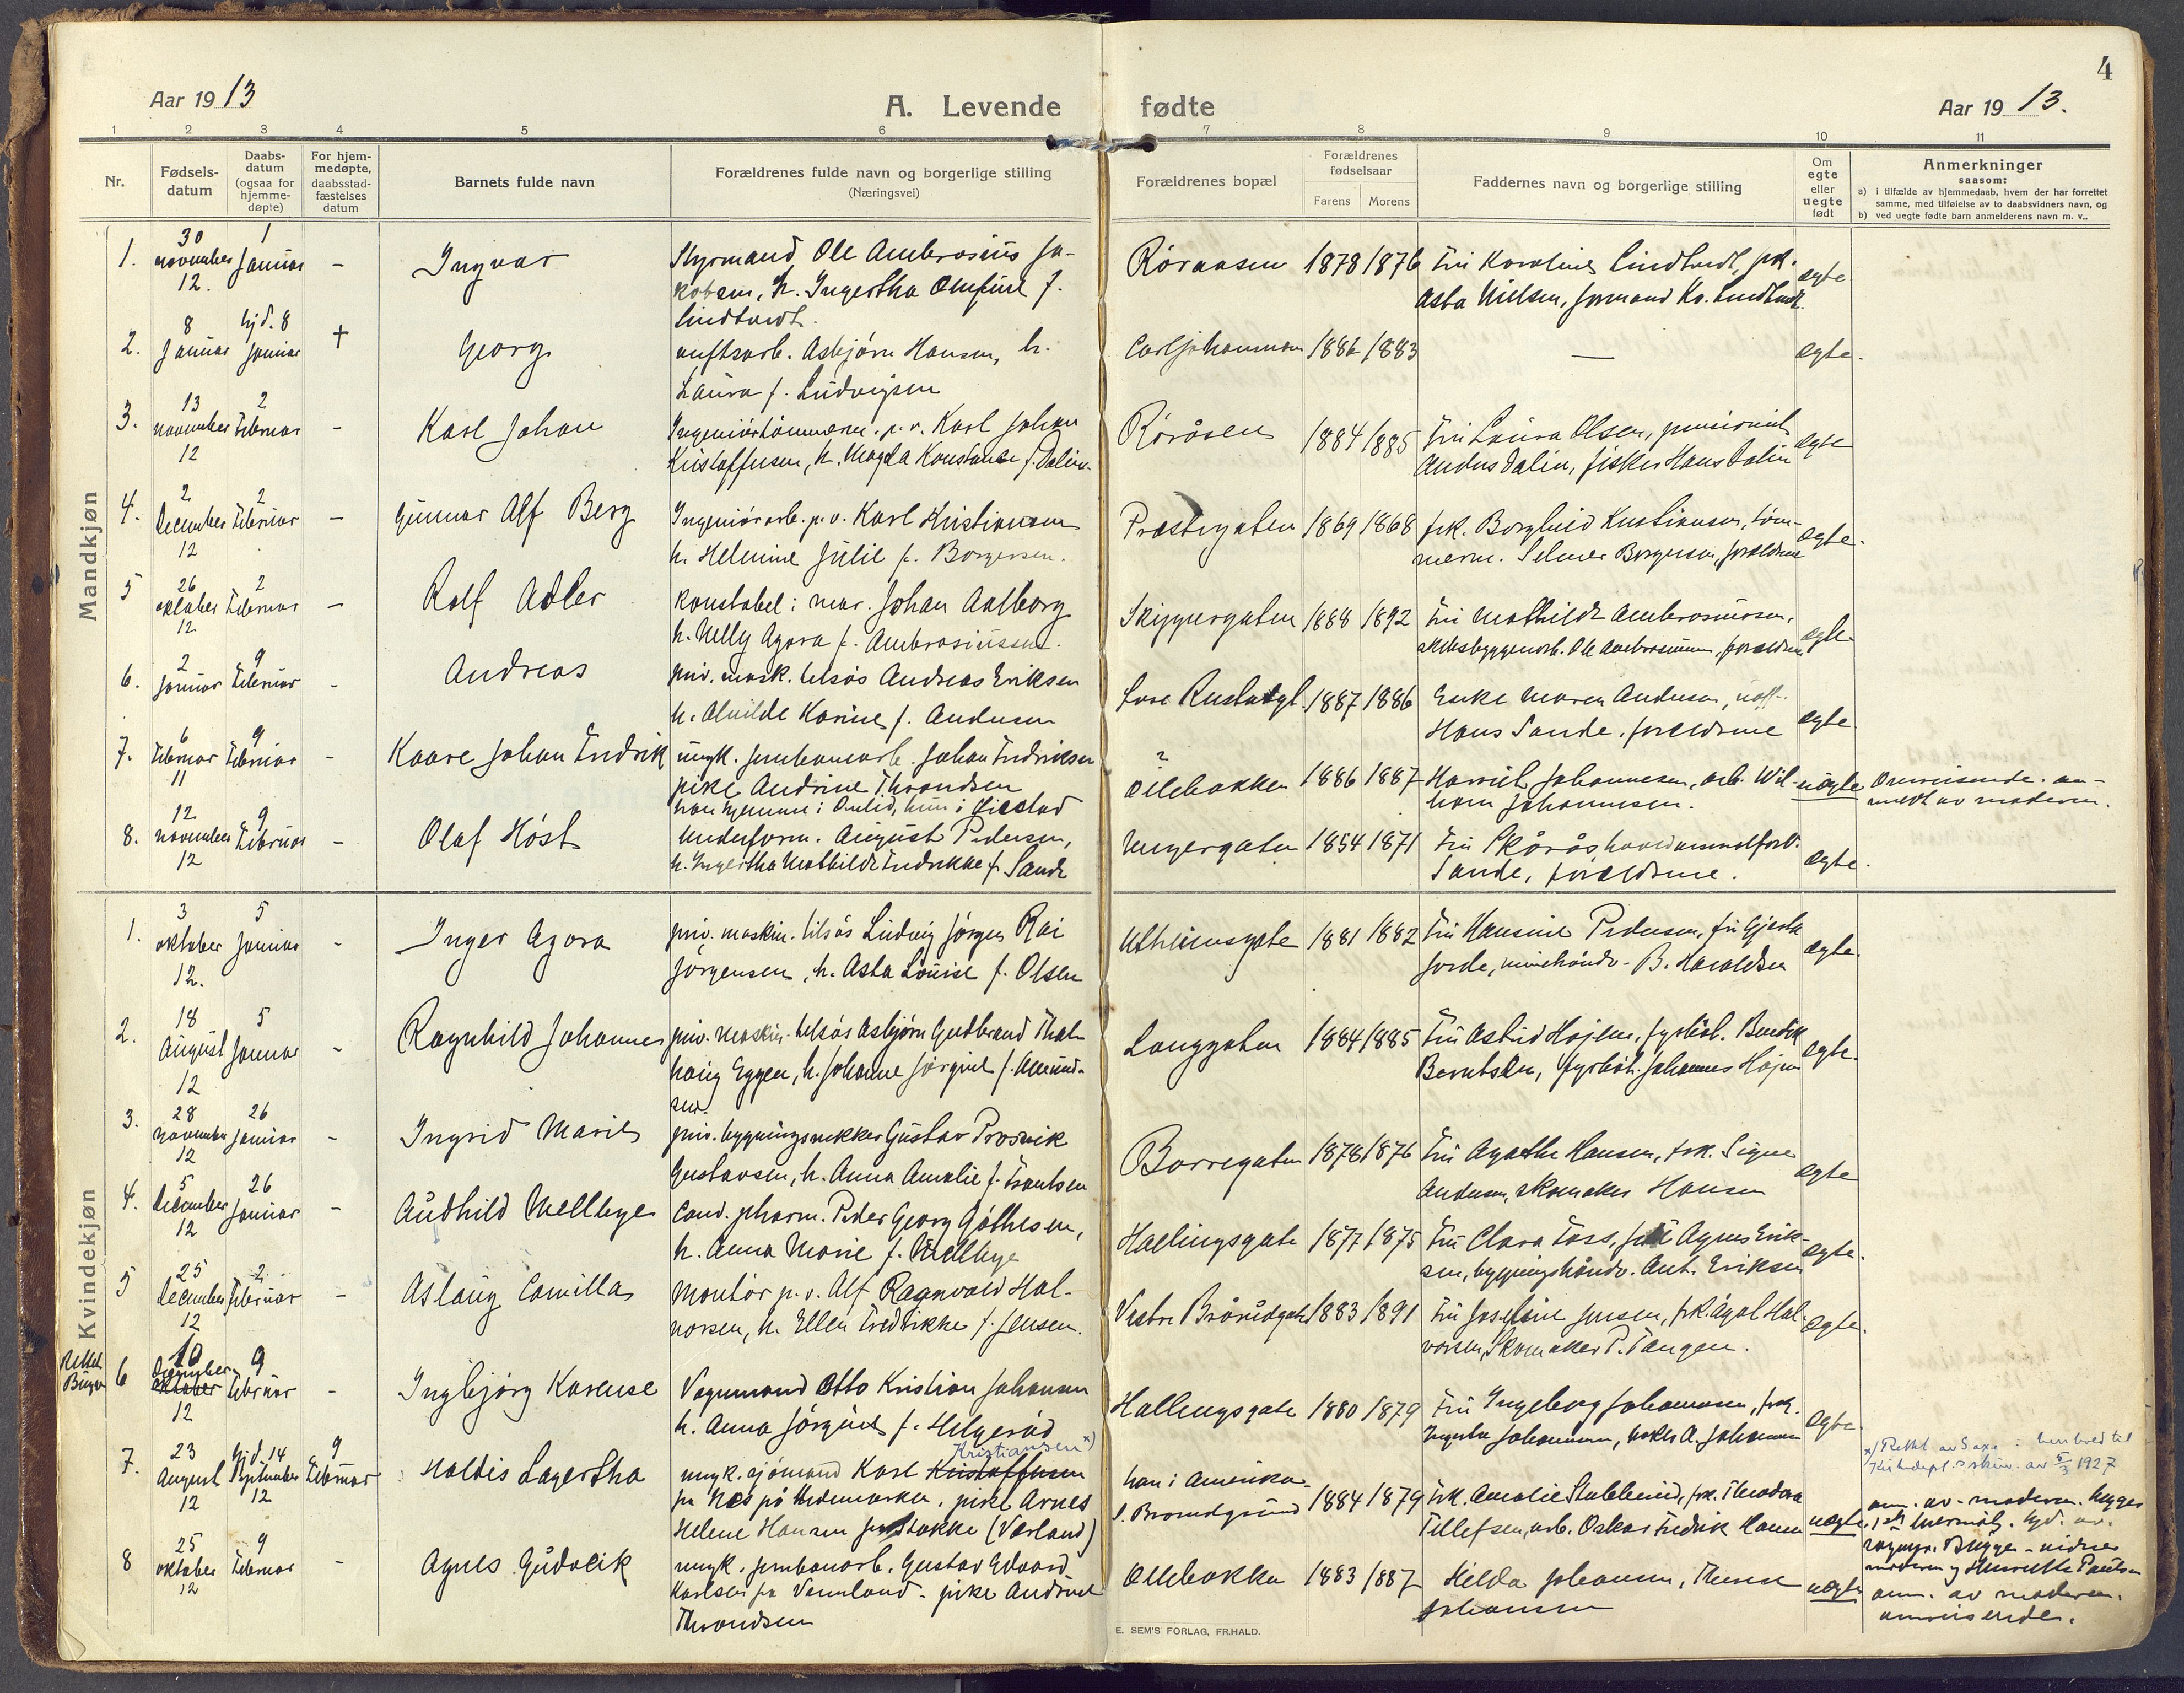 4
Aar 19 13
A. Levende fødte
Aar 19 13.
1 2 3 4 5 6 7 8 9 10 11
Nr.
Fødsels-
datum
Daabs-
datum
(ogsaa for
hjemme-
døpte)
For hjem-
medøpte,
daabsstad-
fæstelses
datum
Barnets fulde navn
Forældrenes fulde navn og borgerlige stilling
(Næringsvei)
Forældrenes bopæl
Forældrenes
fødselsaar
Farens Morens
Faddernes navn og borgerlige stilling
Om
egte
eller
uegte
født
Anmerkninger
saasom:
a) i tilfælde av hjemmedaab, hvem der har forrettet
samme, med tilføielse av to daabsvidners navn, og
b) ved uegte fødte barn anmelderens navn m. v..
Mandkjøn
1.
30
november
12.
1
Januar
-
Ingvar
Styrmand Ole Ambrosius Ja-
kobsen, h. Ingertha Olufine f.
Lindtvedt.
Røraasen
1878 1876
Fru Karoline Lindtvedt, frk.
Asta Nielsen, formand Kr. Lindtvedt.
egte
2.
8
Januar
hjd. 8
Januar
†
Georg
Asbjørn Hansen, h.
Laura f. Ludvigsen
Carljohansmon
1886 1883
—
egte.
3.
13
november
12
2
Februar
-
Karl Johan
Ingeniørtømmerm. p.v. Karl Johan
Kristoffersen, h. Magda Konstanse f. Dalin.
Røråsen
1884 1885
Fru Laura Olsen, pensionist
Anders Dalin, fisker Hans Dalin
egte
4.
2
December
12
2
Februar
-
Gunnar Alf Berg
Ingeniørarb. p.v. Karl Kristiansen
h. Helmine Julie f. Borgersen.
Præstegaten
1869 1868
frk. Borghild Kristiansen, tøm-
merm. Selmer Borgersen, forældrene
egte.
5
26
oktober
12
2
Februar
-
Rolf Adler
Konstabel i mar. Johan Aalborg
h. Nelly Agora f. Ambrosiussen.
Skippergaten
1888 1892
Fru Mathilde Ambrosiussen,
skibsbyggerarb. Ole Ambrosiussen, forældrene
egte.
6.
2
Januar
9
Februar
-
Andreas
priv. mask. tilsås Andreas Eriksen
h. Alvilde Karine f. Andersen
1887 1886
Enke Maren Andersen, uoff.
Hans Sande, forældrene
egte
7.
6
Februar
11
9
Februar
-
Kaare Johan Fredrik
ungk. jernbanearb. Johan Fredriksen
pike Andrine Throndsen
?
Ollebakken
1886 1887
Johannesen, arb. Wil-
helm Johannesen.
uegte
Omreisende. an-
meldt av moderen.
8.
12
november
12
9
Februar
-
Olaf Høst
Underform. August Pedersen,
h. Ingertha Mathilde Fredrikke f. Sande
Ungergaten
1854 1871
Fru Skårås
Sande, forældrene.
egte.
Kvindekjøn
1.
3
oktober
12.
5
Januar
-
Inger Agora
priv. maskin. tilsås Ludvig Jørgen Rai
Jørgensen, h. Asta Louise f. Olsen
Utheimsgate
1881 1882
Fru Hansine Pedersen, fru Gjerta
Jorde, minehåndv. B. Haraldsen
egte.
2.
18
August
12
5
Januar
-
Ragnhild Johanne
priv. maskin. tilsås Asbjørn Gudbrand Thal-
haug Eggen, h. Johanne Jørgine f. Amund-
sen.
Langgaten
1884 1885
Fru Astrid Højem, fyrbøt. Bendik
Berntsen, fyrbøt. Johannes Højem
egte.
3.
28
november
12
26
Januar
-
Ingrid Marie
priv. bygningssnekker Gustav Prosvik
Gustavsen, h. Anna Amalie f. Frantsen
Borregaten
1878 1876
Fru Agathe Hansen, frk. Signe
Andersen, skomaker Hansen
egte
4.
5
December
12
26
Januar
-
Audhild Mellbye
Cand. pharm. Peder Georg Gåthesen,
h. Anna Marie f. Mellbye
Hallingsgate
1877 1875
Fru Clara Foss, Agnes Erik-
sen, bygningshåndv. Ant. Eriksen
egte.
5
25
December
12
2
Februar
-
Aslaug Camilla
Montør p.v. Alf Ragnvald Hal-
vorsen, h. Ellen Fredrikke f. Jensen.
Vestre Brårudgate
1883 1891
Fru Josefine Jensen, frk. Ågot Hal-
vorsen, Skomaker P. Tangen.
egte.
Rettet
Bugge
6
10
December
oktober
12
9
Februar
-
Ingbjørg Karense
Vognmand Otto Kristian Johansen
h. Anna Jørgine f. Helgerød
Hallingsgate
1880 1879
Fru Ingeborg Johannesen, frk.
Ingerta Johannesen, A. Johannesen
egte.
7.
23
August
12
hjd. 14
September
12
9
Februar
Haldis Lagertha
Kristiansen x)
ungk. sjømand Karl Kristoffersen
fra Nes på Hedemarken. pike Arnes
Helene Hansen fra Stokke (Værland)
han i Amerika
S. Bromdgrund
1884 1879
Frk. Amalie Stubberud, frk. Theodora
Tellefsen, arb. Oskar Fredrik Hansen
uegte
x) Rettet av i henhold til
Kirkedept.s skriv. av 5/3 1927
anm. av moderen.
Bugge - vidner
moderen og Henriette Paulsen
8
25
oktober
12
9
Februar
-
Agnes Gudveik
ungk. jernbanearb. Gustav Edvard
Karlsen fra Vermland - pike Andrine
Throndsen
Ollebakken
1883 1887
Hilda Johansen, Therese
Johansen
uegte
anm. av moderen.
omreisende.
E. SEM'S FORLAG, FR.HALD.